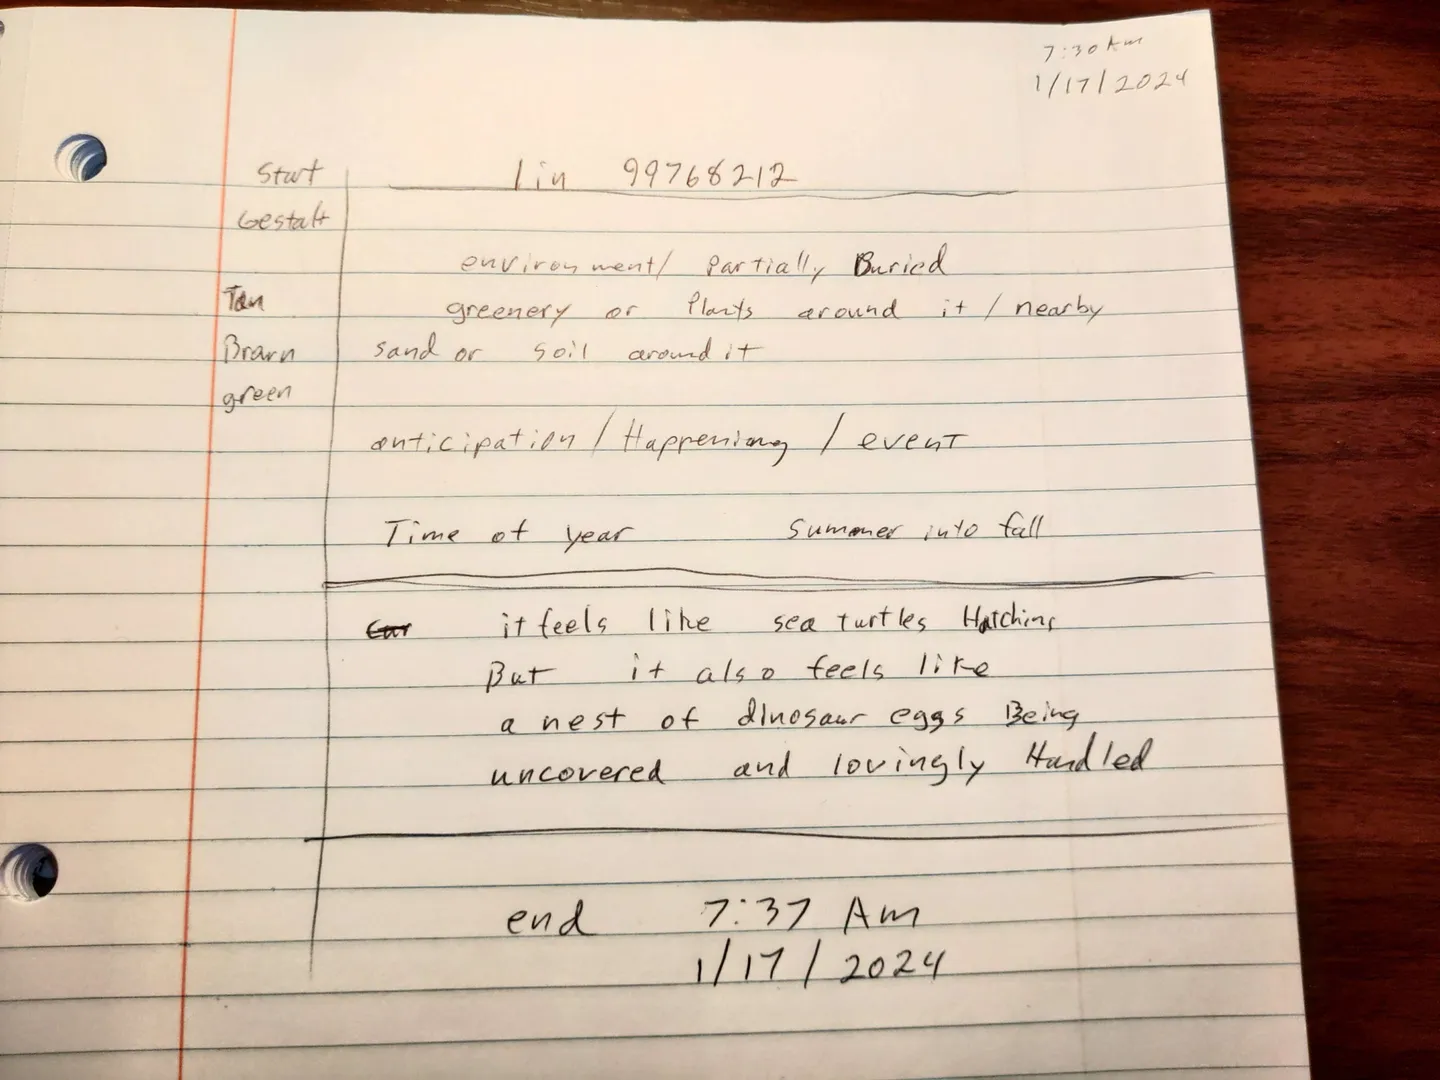 7:30 Am
1/17/2024
Start lin 99768212
Gestalt
environment/ Partially Buried
Tan greenery or Plants around it / nearby
Brown sand or soil around it
green
anticipation / Happening / event
Time of year Summer into fall
it feels like sea turtles Hatching
But it also feels like
a nest of dinosaur eggs Being
uncovered and lovingly Handled
end 7:37 Am
1/17/2024